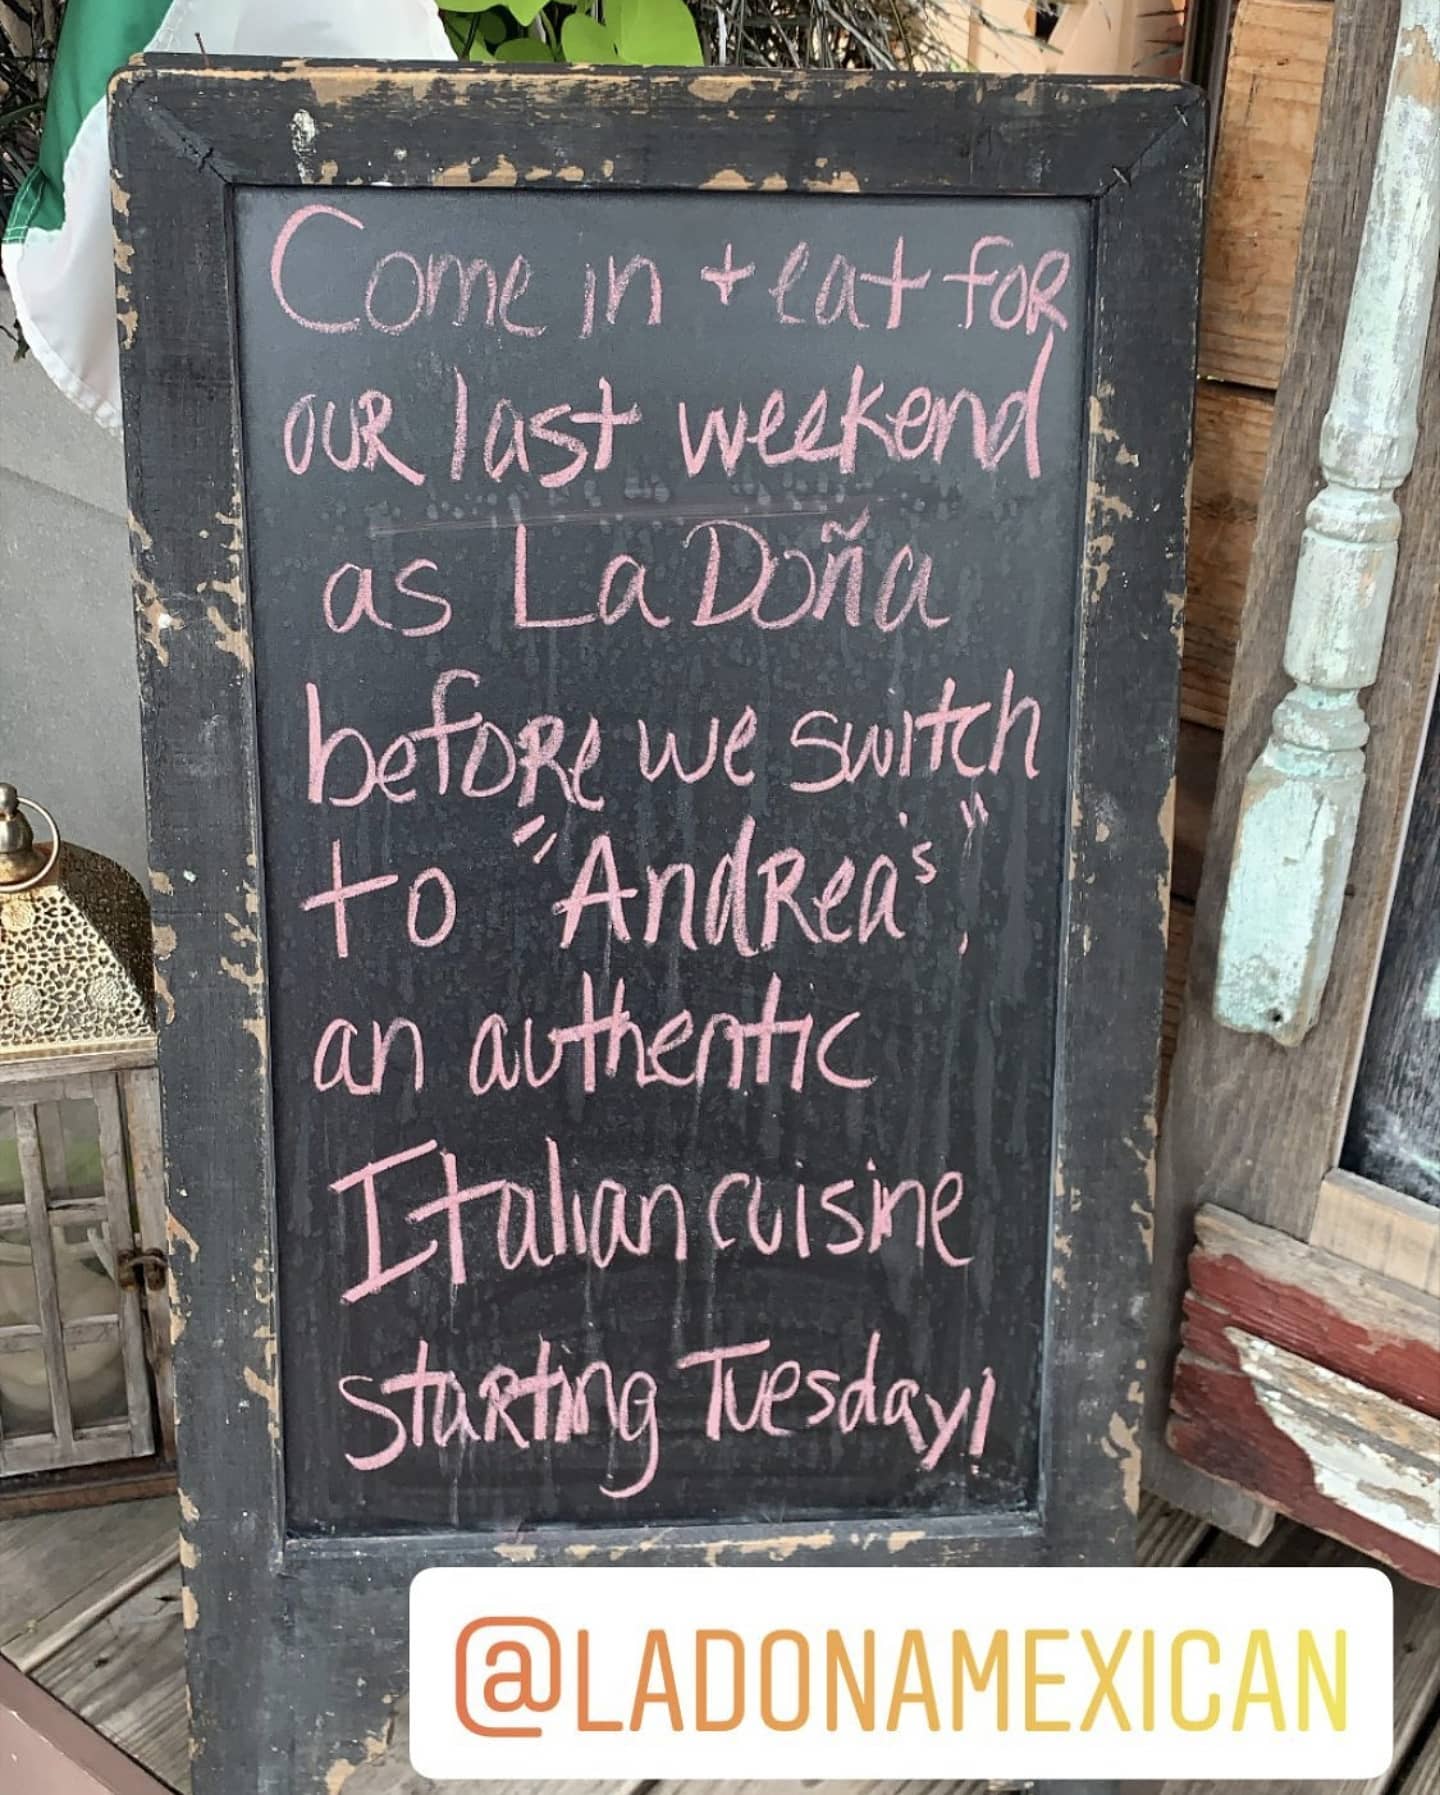 Come in + eat for
our last weekend
as La Doña
before we switch
to "Andrea's",
an authentic
Italian cuisine
starting Tuesday!
@LADONAMEXICAN